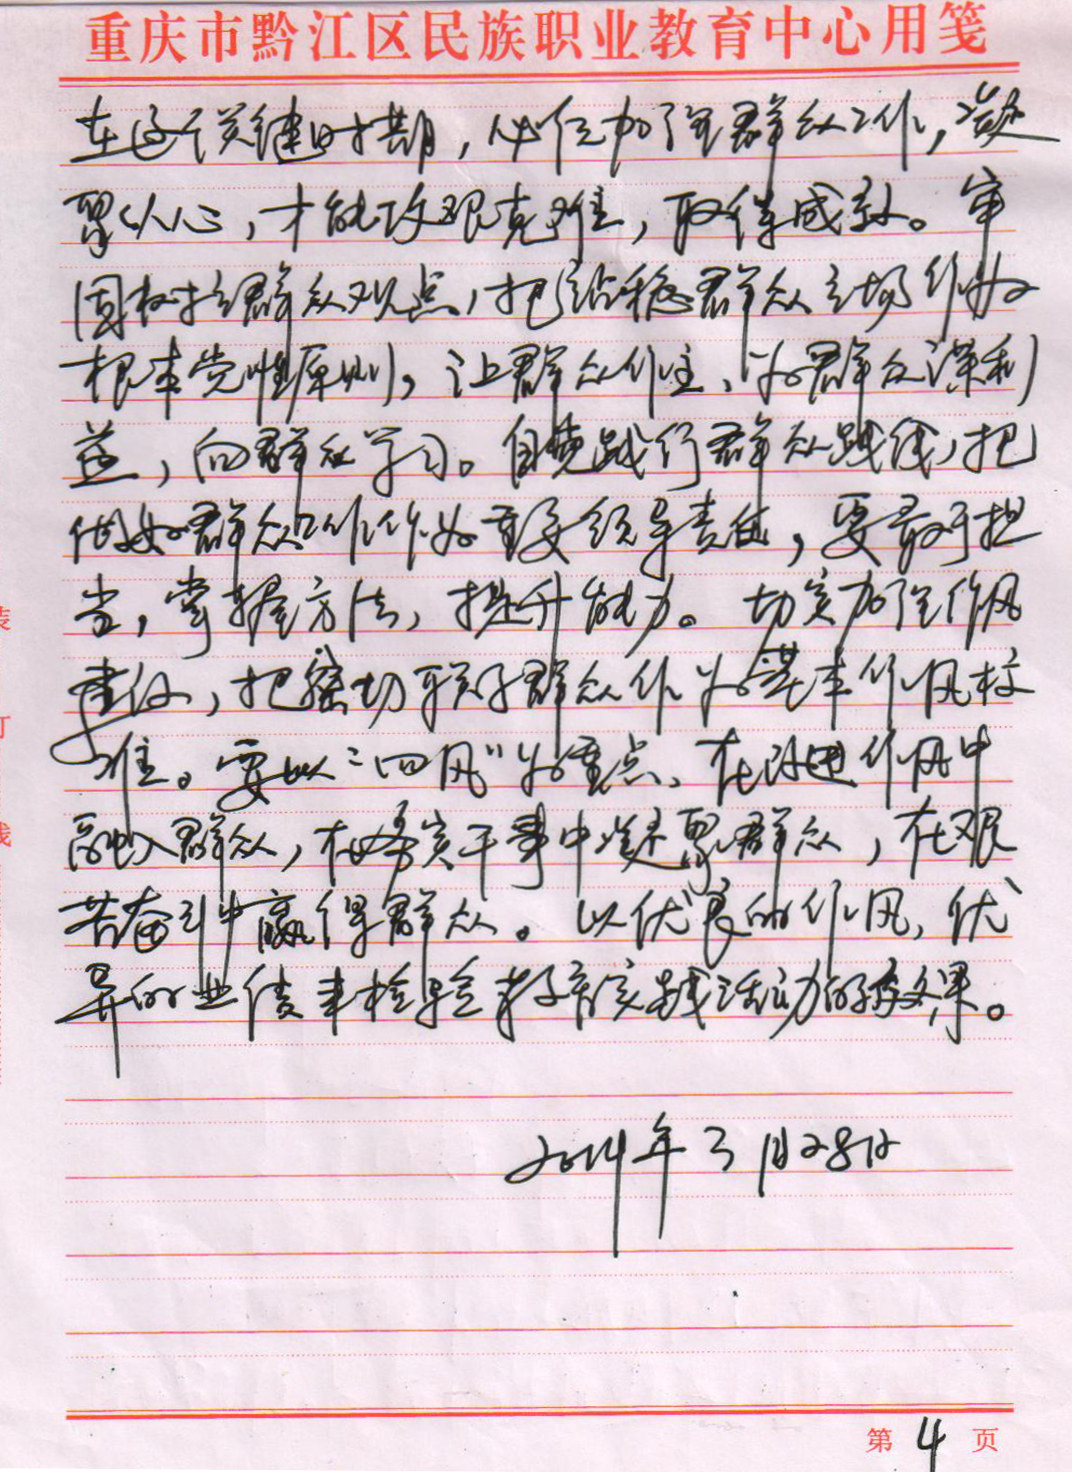 重庆市黔江区民族职业教育中心用笺
在这个关键时期，必须加强群众工作，凝
聚人心，才能攻艰克难，取得成效。牢
固树立群众观点，把站稳群众立场作为
根本党性原则，让群众作主、为群众谋利
益，向群众学习。自觉践行群众路线，把
做好群众工作作为重要领导责任，要敢于担
当，掌握方法，提升能力。切实加强作风
建设，把密切联系群众作为基本作风校
准。要以“四风”为重点、在改进作风中
融入群众，在务实干事中凝聚群众，在艰
苦奋斗中赢得群众。以优良的作风、优
异的业绩来检验教育实践活动的效果。
2014年3月28日
第 4 页
装
订
线